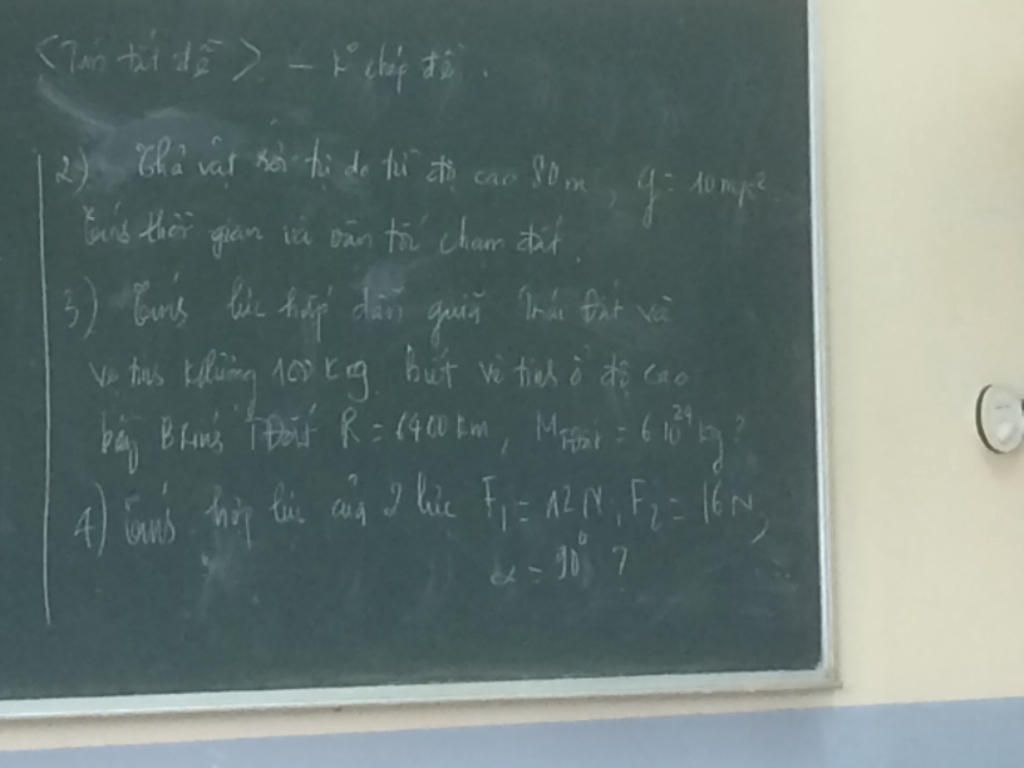 <Tóm tắt đề> - k° chép đề.
2) Thả vật rơi tự do từ độ cao 80m, g = 10m/s²
Tính thời gian và vận tốc chạm đất.
3) Tính lực hấp dẫn giữa Trái Đất và
vệ tinh khlượng 100 kg. biết vệ tinh ở độ cao
bằng Bkính TĐất R = 6400 km, M TĐất = 6 10²⁴ kg?
4) Tính hợp lực của 2 lực F₁ = 12N, F₂ = 16N,
α = 90° ?